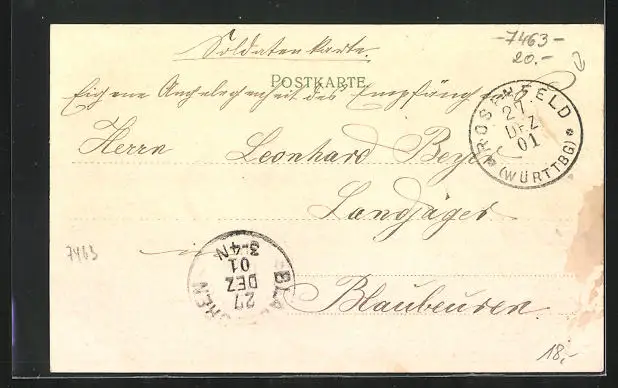 -7463-
20.-
Soldatenkarte.
POSTKARTE
Eigene Angelegenheit des Empfängers
ROSENFELD
27
DEZ
01
(WÜRTTBG)
Herrn Leonhard Beyer
Landjäger
7463
in
Blaubeuren
BLA HREN
27
DEZ
01
3-4N
18,-